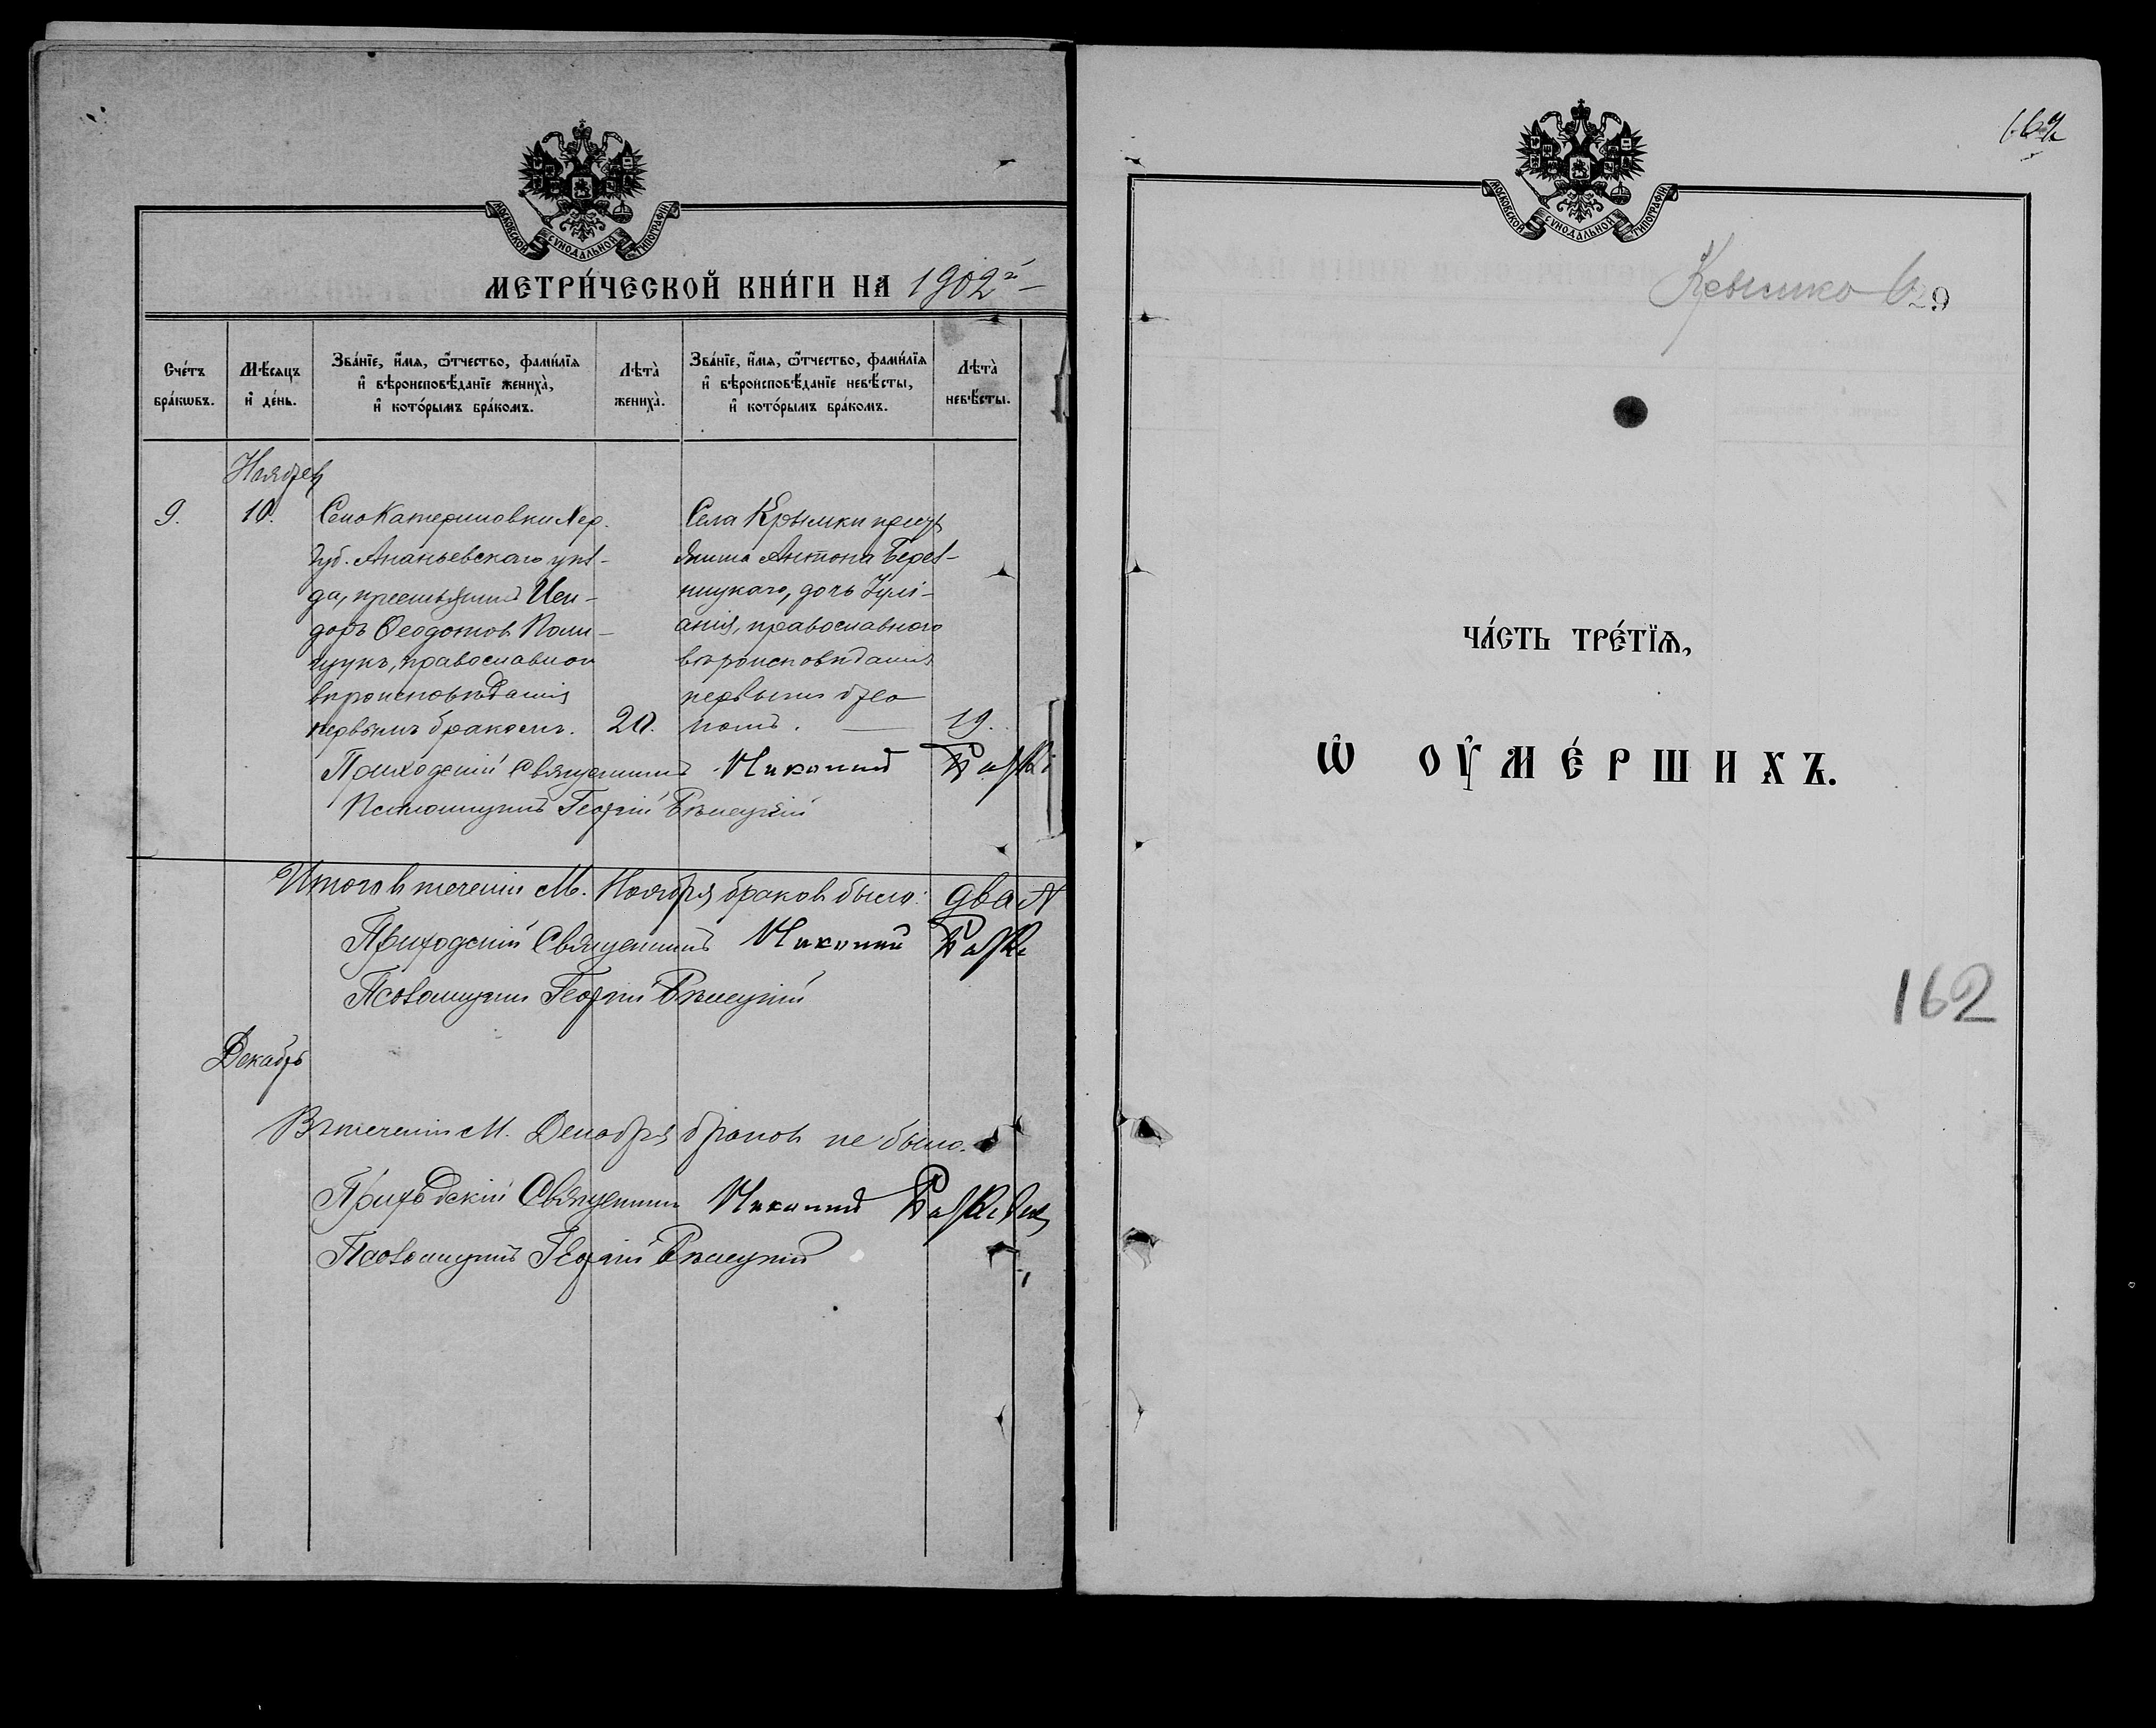 МОСКОВСКОЙ СѴНОДАЛЬНОЙ ТИПОГРАФІИ
МЕТРИ́ЧЕСКОЙ КНИ́ГИ НА 1902й
Сче́тъ бра́кѡвъ.
Мѣ́сяцъ и҆ де́нь.
Зва́нїе, и҆́мѧ, ѻ҆́тчество, фами́лїѧ
и҆ вѣроисповѣ́данїе жениха̀,
и҆ кото́рымъ бра́комъ.
Лѣта̀ жениха̀.
Зва́нїе, и҆́мѧ, ѻ҆́тчество, фами́лїѧ
и҆ вѣроисповѣ́данїе невѣ́сты,
и҆ кото́рымъ бра́комъ.
Лѣта̀ невѣ́сты.
Ноябрь
9. 10.
Село Катериновки Хер.
губ. Ананьевского уѣз-
да, крестьянинъ Иси-
доръ Ѳеодотов Поли-
щукъ, православнои
вѣроисповѣданія
первымъ бракомъ. 20.
Села Крымки крест
янина Антона Берев-
ницкаго, дочь Іулі-
анія, православного
вѣроисповѣданія
первымъ бра
комъ. 19.
Приходскій Священникъ
Псаломщикъ Георгій
Итого в теченіи М. Ноября браков было: два
Приходскій Священникъ
Псаломщикъ Георгій
Декабрь
Въ теченіи М. Декабря браков не было.
Приходскій Священникъ
Псаломщикъ Георгій
МОСКОВСКОЙ СѴНОДАЛЬНОЙ ТИПОГРАФІИ
29
ЧА́СТЬ ТРЕ́ТЇѦ,
Ѡ҆ ОУ҆МЕ́РШИХЪ.
162